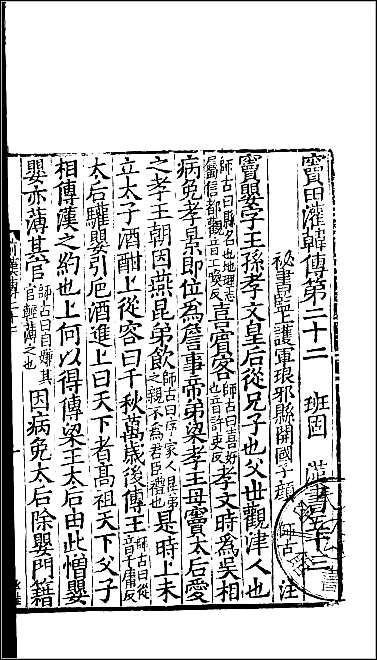 竇田灌韓傳第二十二　班固　漢書五十二
秘書監上護軍琅邪縣開國子顏師古注
竇嬰字王孫孝文皇后從兄子也父世觀津人也
師古曰縣名也地理志屬信都觀音工喚反喜賓客師古曰喜好也音許吏反孝文時爲吳相
病免孝景即位爲詹事帝弟梁孝王母竇太后愛
之孝王朝因燕昆弟飲師古曰序家人昆弟之親不爲君臣禮也是時上未
立太子酒酣上從容曰千秋萬歲後傳王師古曰從音千庸反
太后驩嬰引卮酒進上曰天下者髙祖天下父子
相傳漢之約也上何以得傳梁王太后由此憎嬰
嬰亦薄其官師古曰自嫌其官輕薄之也因病免太后除嬰門籍
前漢傳二十二